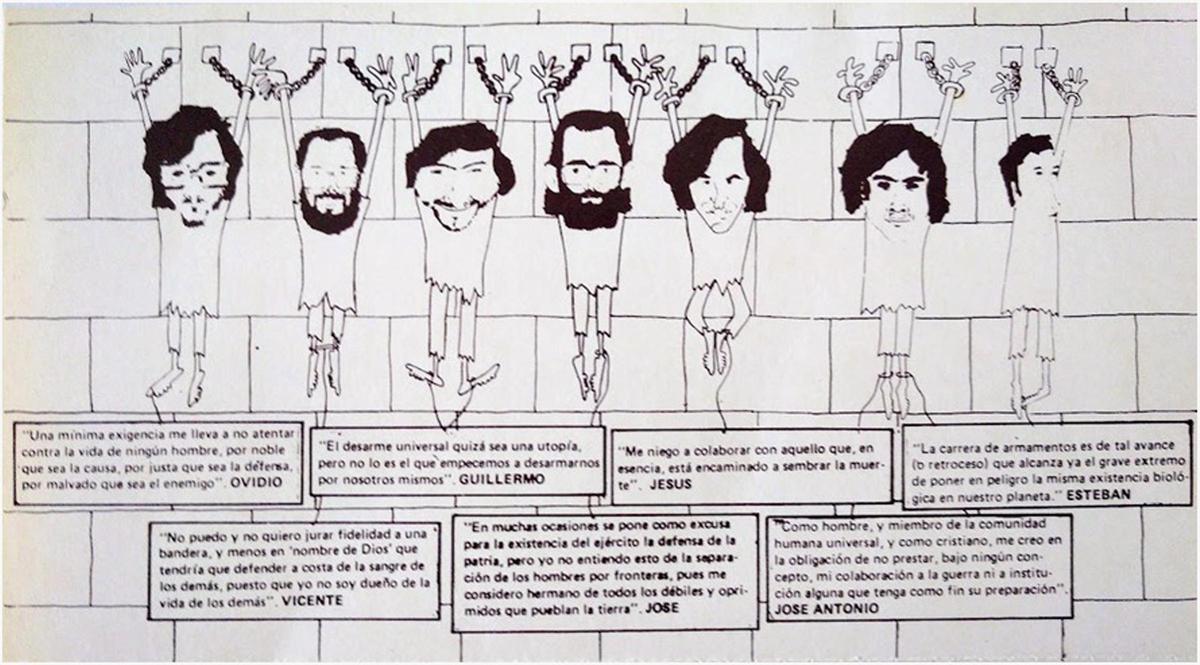 "Una mínima exigencia me lleva a no atentar
contra la vida de ningún hombre, por noble
que sea la causa, por justa que sea la defensa,
por malvado que sea el enemigo". OVIDIO
"El desarme universal quizá sea una utopía,
pero no lo es el que empecemos a desarmarnos
por nosotros mismos". GUILLERMO
"Me niego a colaborar con aquello que, en
esencia, está encaminado a sembrar la muer-
te". JESUS
"La carrera de armamentos es de tal avance
(o retroceso) que alcanza ya el grave extremo
de poner en peligro la misma existencia bioló-
gica en nuestro planeta." ESTEBAN
"No puedo y no quiero jurar fidelidad a una
bandera, y menos en 'nombre de Dios' que
tendría que defender a costa de la sangre de
los demás, puesto que yo no soy dueño de la
vida de los demás". VICENTE
"En muchas ocasiones se pone como excusa
para la existencia del ejército la defensa de la
patria, pero yo no entiendo esto de la separa-
ción de los hombres por fronteras, pues me
considero hermano de todos los débiles y opri-
midos que pueblan la tierra". JOSE
"Como hombre, y miembro de la comunidad
humana universal, y como cristiano, me creo en
la obligación de no prestar, bajo ningún con-
cepto, mi colaboración a la guerra ni a institu-
ción alguna que tenga como fin su preparación".
JOSE ANTONIO